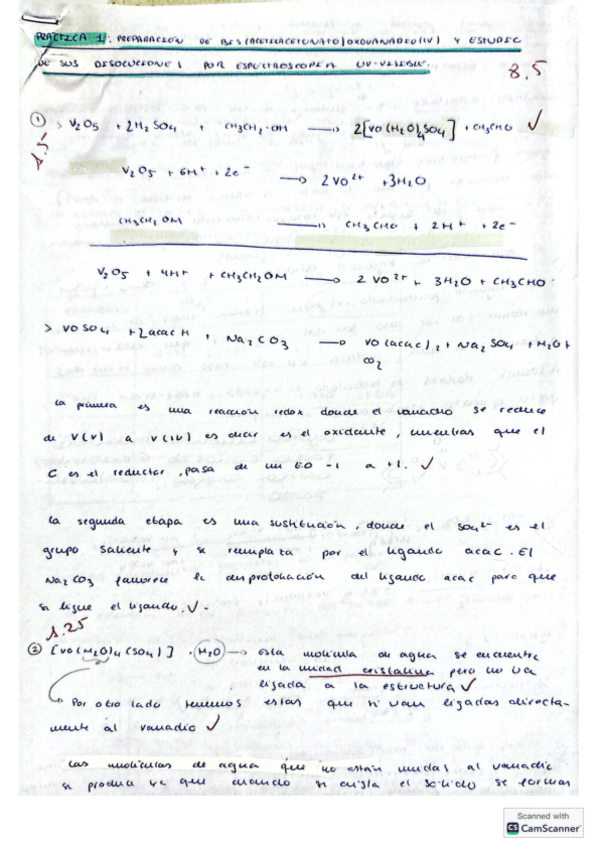 PRÁCTICA 1: PREPARACIÓN DE BIS(ACETILACETONATO)OXOVANADIO(IV) Y ESTUDIO
DE SUS DISOLUCIONES POR ESPECTROSCOPIA UV-VISIBLE.
8.5
① > V₂O₅ + 2H₂SO₄ + CH₃CH₂-OH ⟶ 2[VO(H₂O)₄SO₄] + CH₃CHO ✓
1.5
V₂O₅ + 6H⁺ + 2e⁻ ⟶ 2VO²⁺ + 3H₂O
CH₃CH₂OH ⟶ CH₃CHO + 2H⁺ + 2e⁻
V₂O₅ + 4H⁺ + CH₃CH₂OH ⟶ 2VO²⁺ + 3H₂O + CH₃CHO
> VOSO₄ + 2acacH + Na₂CO₃ ⟶ VO(acac)₂ + Na₂SO₄ + H₂O +
CO₂
La primera es una reacción redox donde el vanadio se reduce
de V(V) a V(IV) es decir es el oxidante, mientras que el
C es el reductor, pasa de un EO -1 a +1. ✓
La segunda etapa es una sustitución, donde el SO₄²⁻ es el
grupo saliente y se remplaza por el ligando acac. El
Na₂CO₃ favorece la desprotonación del ligando acac para que
se ligue el ligando. ✓
1.25
② [VO(H₂O)₄(SO₄)] · H₂O ⟶ Esta molécula de agua se encuentra
en la unidad cristalina pero no va
ligada a la estructura ✓
Por otro lado tenemos estas que si van ligadas directa-
mente al vanadio ✓
Las moléculas de agua que no están unidas al vanadio
se produce ya que cuando se aisla el sólido se forman
Scanned with
CS CamScanner